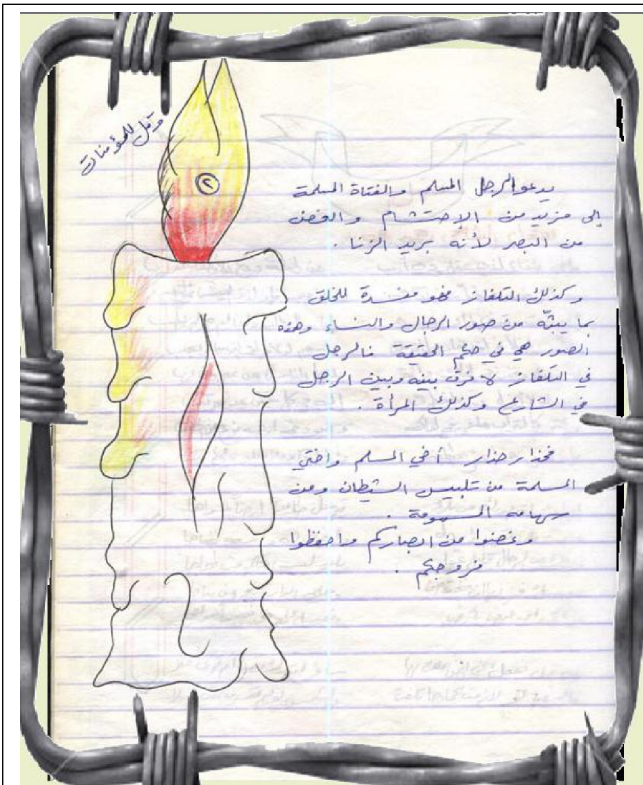 وقل للمؤمنات
٢
يدعو الرجل المسلم والفتاة المسلمة
إلى مزيد من الاحتشام والغض
من البصر لأنه بريد الزنا .
وكذلك التلفاز فهو مفسدة للخلق
بما يبثّه من صور الرجال والنساء وهذه
الصور هي في حكم الحقيقة فالرجل
في التلفاز لا فرق بينه وبين الرجل
في الشارع وكذلك المرأة .
فحذار حذار أخي المسلم واختي
المسلمة من تلبيس الشيطان ومن
سهامه المسمومة .
وغضوا من ابصاركم واحفظوا
فروجكم .